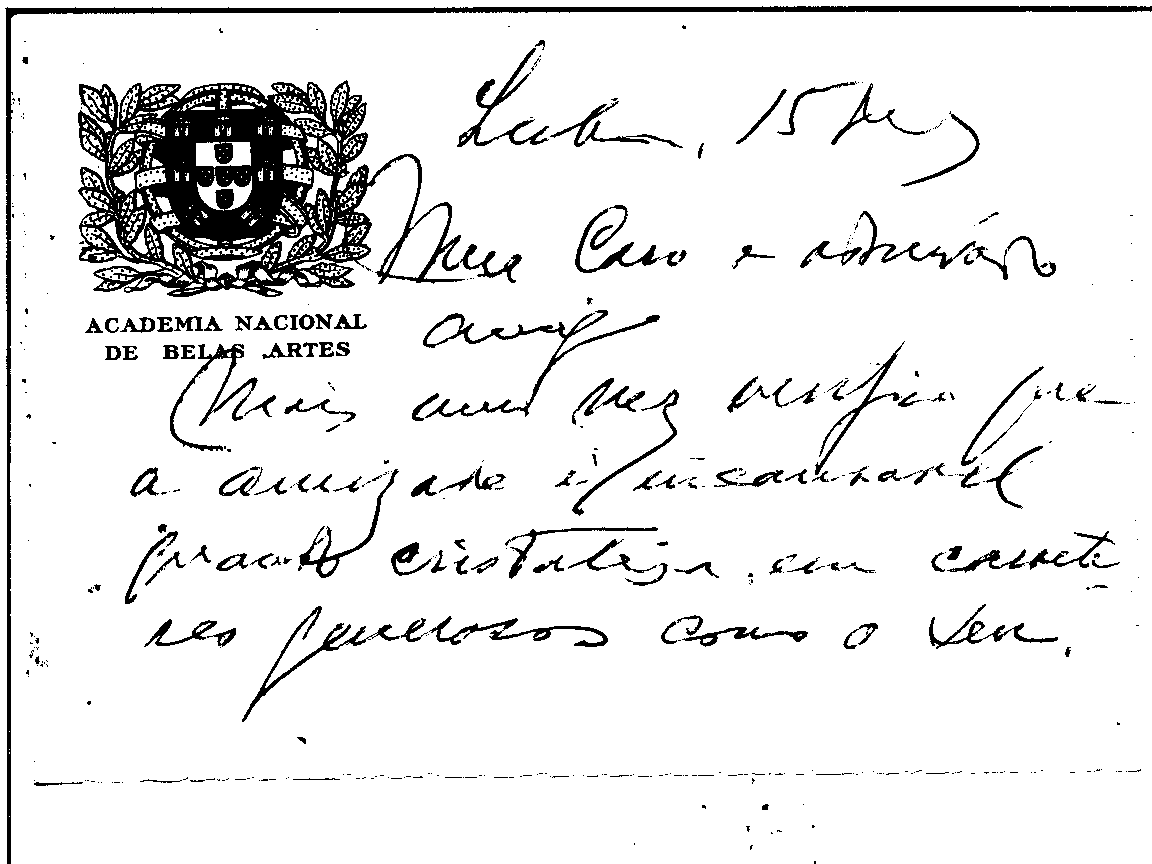 Lisboa, 15 Dez
ACADEMIA NACIONAL
DE BELAS ARTES
Meu Caro e admirado
amigo
Mais uma vez verifico que
a amizade é incansavel
quando cristaliza em caracte-
res generosos como o seu.